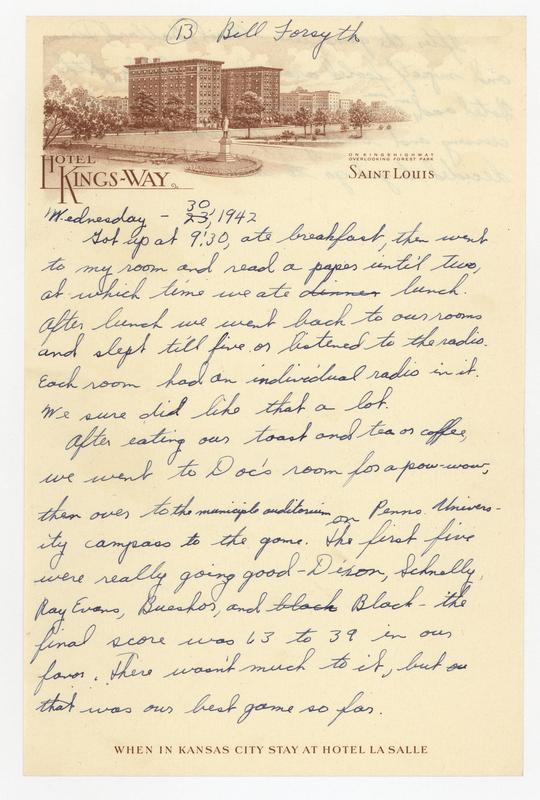 13 Bill Forsyth
HOTEL
KINGS-WAY
ON KINGSHIGHWAY
OVERLOOKING FOREST PARK
SAINT LOUIS
30
Wednesday - 23, 1942
Got up at 9:30, ate breakfast, then went
to my room and read a paper until two,
at which time we ate dinner lunch.
After lunch we went back to our rooms
and slept till five or listened to the radio.
Each room had an individual radio in it.
We sure did like that a lot.
After eating our toast and tea or coffee,
we went to Doc's room for a pow-wow,
then over to the municiple auditorium on Penns. Univers-
ity campass to the game. The first five
were really going good - Dixon, Schnelly,
Ray Evans, Bueshor, and black Black - the
final score was 63 to 39 in our
favor. There wasn't much to it, but
that was our best game so far.
WHEN IN KANSAS CITY STAY AT HOTEL LA SALLE